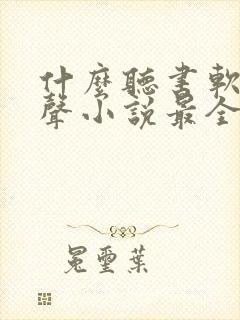 什麼聽書軟
聲小說最全
冕璽葉